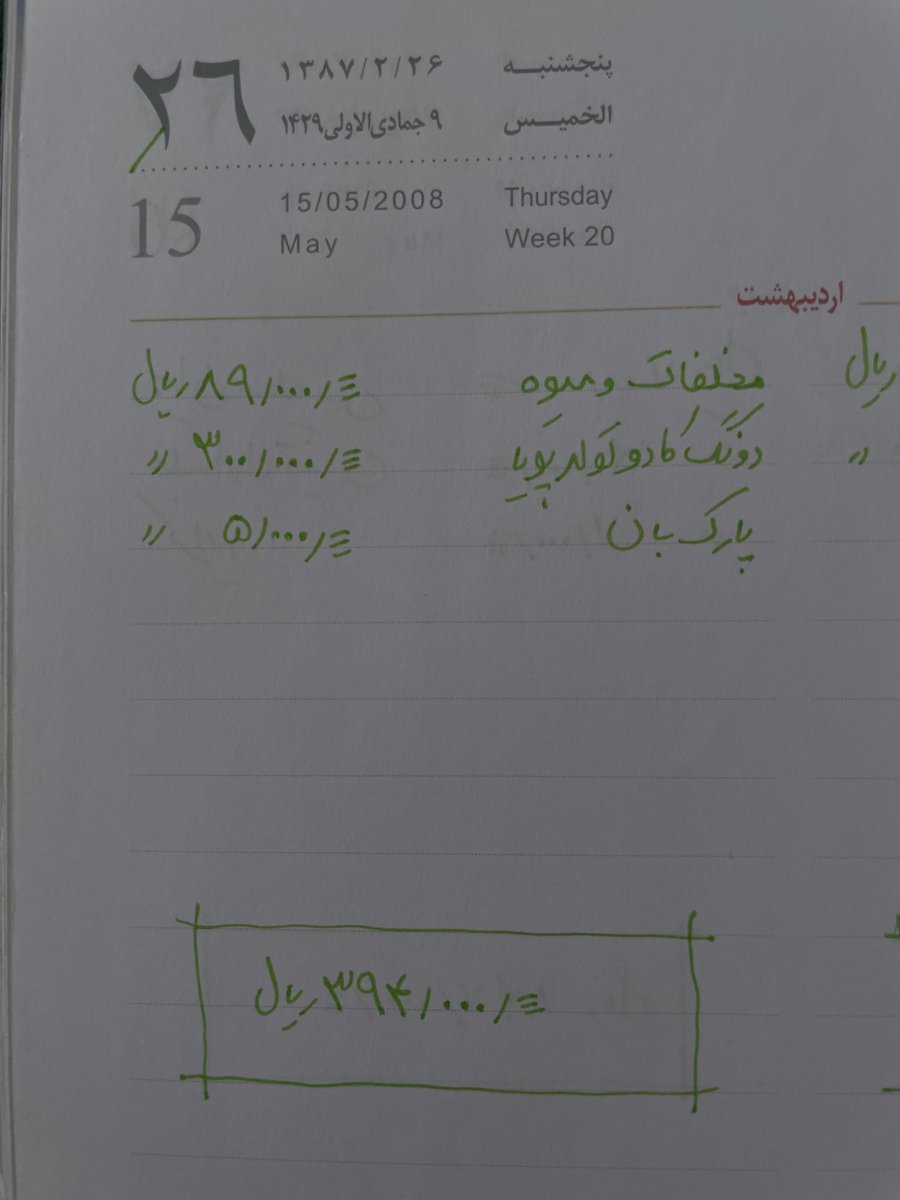 ۲۶
پنجشنبه ۱۳۸۷/۲/۲۶
الخمیس ۹ جمادی‌الاولی ۱۴۲۹
15
15/05/2008 Thursday
May Week 20
اردیبهشت
مخلفات و میوه ۸۹/۰۰۰/= ریال
دونگ کادو تولد پویا ۳۰۰/۰۰۰/= "
پارک بان ۵/۰۰۰/= "
۳۹۴/۰۰۰/= ریال
ریال
"